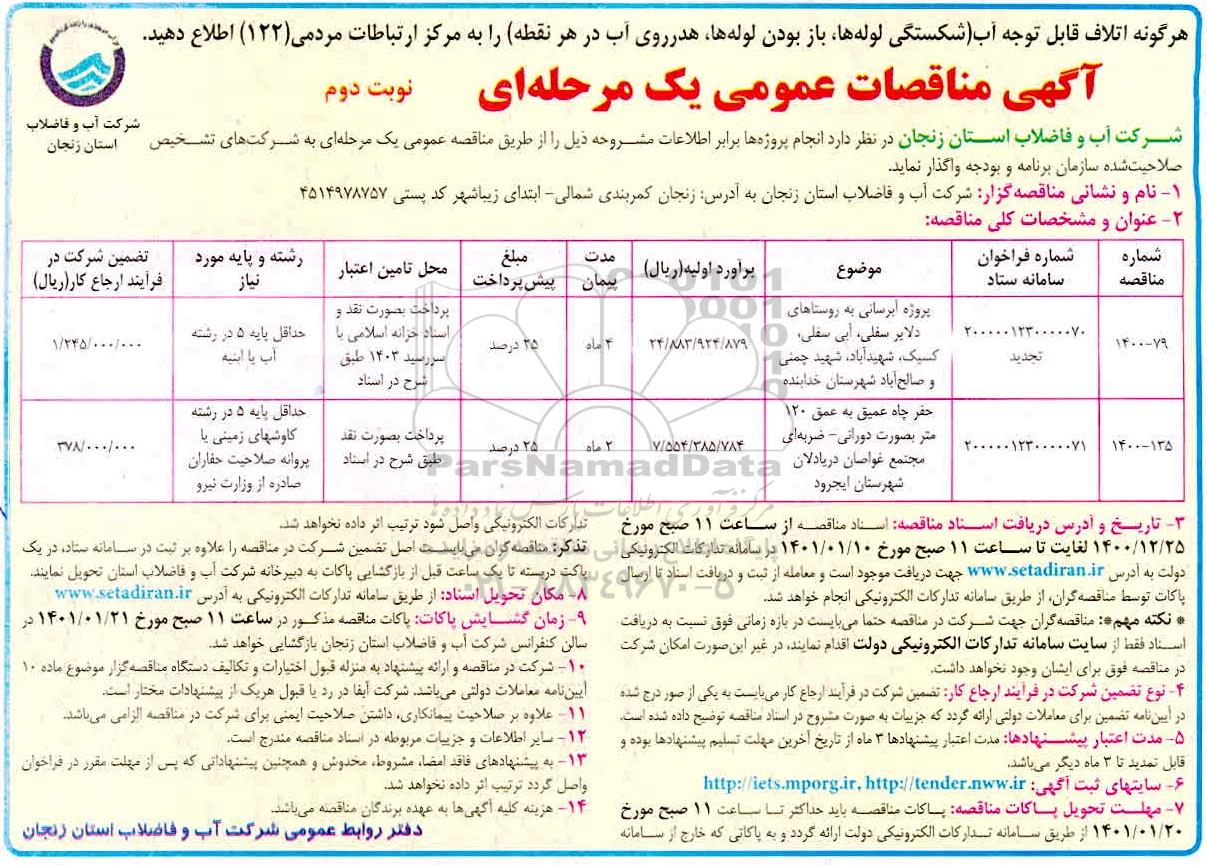 هرگونه اتلاف قابل توجه آب(شکستگی لوله‌ها، باز بودن لوله‌ها، هدرروی آب در هر نقطه) را به مرکز ارتباطات مردمی(۱۲۲) اطلاع دهید.
آگهی مناقصات عمومی یک مرحله‌ای
نوبت دوم
شرکت آب و فاضلاب
استان زنجان
شرکت آب و فاضلاب استان زنجان در نظر دارد انجام پروژه‌ها برابر اطلاعات مشروحه ذیل را از طریق مناقصه عمومی یک مرحله‌ای به شرکت‌های تشخیص
صلاحیت‌شده سازمان برنامه و بودجه واگذار نماید.
۱- نام و نشانی مناقصه‌گزار: شرکت آب و فاضلاب استان زنجان به آدرس: زنجان کمربندی شمالی- ابتدای زیباشهر کد پستی ۴۵۱۴۹۷۸۷۵۷
۲- عنوان و مشخصات کلی مناقصه:
شماره مناقصه | شماره فراخوان سامانه ستاد | موضوع | برآورد اولیه(ریال) | مدت پیمان | مبلغ پیش‌پرداخت | محل تامین اعتبار | رشته و پایه مورد نیاز | تضمین شرکت در فرآیند ارجاع کار(ریال)
۱۴۰۰-۷۹ | ۲۰۰۰۰۰۱۲۳۰۰۰۰۰۷۰ تجدید | پروژه آبرسانی به روستاهای دلایر سفلی، آبی سفلی، کسیک، شهیدآباد، شهید چمنی و صالح‌آباد شهرستان خدابنده | ۲۴/۸۸۳/۹۲۴/۸۷۹ | ۴ ماه | ۲۵ درصد | پرداخت بصورت نقد و اسناد خزانه اسلامی با سررسید ۱۴۰۳ طبق شرح در اسناد | حداقل پایه ۵ در رشته آب یا ابنیه | ۱/۲۴۵/۰۰۰/۰۰۰
۱۴۰۰-۱۳۵ | ۲۰۰۰۰۰۱۲۳۰۰۰۰۰۷۱ | حفر چاه عمیق به عمق ۱۲۰ متر بصورت دورانی- ضربه‌ای مجتمع غواصان دریادلان شهرستان ایجرود | ۷/۵۵۴/۳۸۵/۷۸۴ | ۲ ماه | ۲۵ درصد | پرداخت بصورت نقد طبق شرح در اسناد | حداقل پایه ۵ در رشته کاوشهای زمینی یا پروانه صلاحیت حفاران صادره از وزارت نیرو | ۳۷۸/۰۰۰/۰۰۰
ParsNamadData
۳- تاریخ و آدرس دریافت اسناد مناقصه: اسناد مناقصه از ساعت ۱۱ صبح مورخ
۱۴۰۰/۱۲/۲۵ لغایت تا ساعت ۱۱ صبح مورخ ۱۴۰۱/۰۱/۱۰ در سامانه تدارکات الکترونیکی
دولت به آدرس www.setadiran.ir جهت دریافت موجود است و معامله از ثبت و دریافت اسناد تا ارسال
پاکات توسط مناقصه‌گران، از طریق سامانه تدارکات الکترونیکی انجام خواهد شد.
* نکته مهم*: مناقصه‌گران جهت شرکت در مناقصه حتما می‌بایست در بازه زمانی فوق نسبت به دریافت
اسناد فقط از سایت سامانه تدارکات الکترونیکی دولت اقدام نمایند، در غیر این‌صورت امکان شرکت
در مناقصه فوق برای ایشان وجود نخواهد داشت.
۴- نوع تضمین شرکت در فرآیند ارجاع کار: تضمین شرکت در فرآیند ارجاع کار می‌بایست به یکی از صور درج شده
در آیین‌نامه تضمین برای معاملات دولتی ارائه گردد که جزییات به صورت مشروح در اسناد مناقصه توضیح داده شده است.
۵- مدت اعتبار پیشنهادها: مدت اعتبار پیشنهادها ۳ ماه از تاریخ آخرین مهلت تسلیم پیشنهادها بوده و
قابل تمدید تا ۳ ماه دیگر می‌باشد.
۶- سایتهای ثبت آگهی: http://iets.mporg.ir, http://tender.nww.ir
۷- مهلت تحویل پاکات مناقصه: پاکات مناقصه باید حداکثر تا ساعت ۱۱ صبح مورخ
۱۴۰۱/۰۱/۲۰ از طریق سامانه تدارکات الکترونیکی دولت ارائه گردد و به پاکاتی که خارج از سامانه
تدارکات الکترونیکی واصل شود ترتیب اثر داده نخواهد شد.
تذکر: مناقصه‌گران می‌بایست اصل تضمین شرکت در مناقصه را علاوه بر ثبت در سامانه ستاد، در یک
پاکت دربسته تا یک ساعت قبل از بازگشایی پاکات به دبیرخانه شرکت آب و فاضلاب استان تحویل نمایند.
۸- مکان تحویل اسناد: از طریق سامانه تدارکات الکترونیکی به آدرس www.setadiran.ir
۹- زمان گشایش پاکات: پاکات مناقصه مذکور در ساعت ۱۱ صبح مورخ ۱۴۰۱/۰۱/۲۱ در
سالن کنفرانس شرکت آب و فاضلاب استان زنجان بازگشایی خواهد شد.
۱۰- شرکت در مناقصه و ارائه پیشنهاد به منزله قبول اختیارات و تکالیف دستگاه مناقصه‌گزار موضوع ماده ۱۰
آیین‌نامه معاملات دولتی می‌باشد. شرکت آبفا در رد یا قبول هریک از پیشنهادات مختار است.
۱۱- علاوه بر صلاحیت پیمانکاری، داشتن صلاحیت ایمنی برای شرکت در مناقصه الزامی می‌باشد.
۱۲- سایر اطلاعات و جزییات مربوطه در اسناد مناقصه مندرج است.
۱۳- به پیشنهادهای فاقد امضا، مشروط، مخدوش و همچنین پیشنهاداتی که پس از مهلت مقرر در فراخوان
واصل گردد ترتیب اثر داده نخواهد شد.
۱۴- هزینه کلیه آگهی‌ها به عهده برندگان مناقصه می‌باشد.
دفتر روابط عمومی شرکت آب و فاضلاب استان زنجان